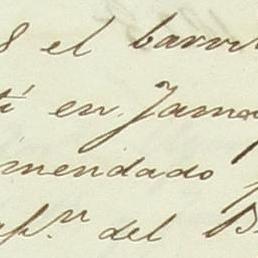 8 el barri
té en Jama
mendado
ap.n del B